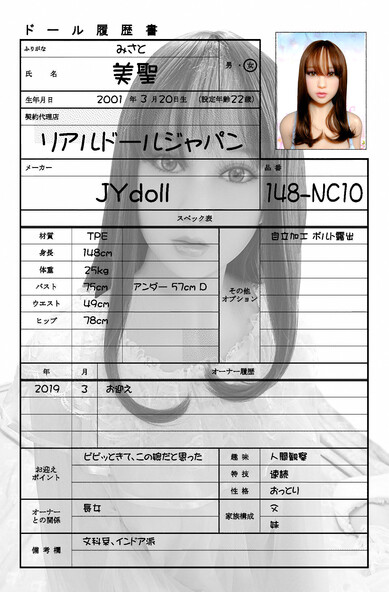 ドール履歴書
ふりがな みさと
氏名 美聖 男・女
生年月日 2001 年 3 月 20 日生 (設定年齢 22歳)
契約代理店
リアルドールジャパン
メーカー 品番
JYdoll 148-NC10
スペック表
材質 TPE 自立加工 ボルト露出
身長 148cm
体重 25kg
バスト 75cm アンダー 57cm D その他オプション
ウエスト 49cm
ヒップ 78cm
年 月 オーナー履歴
2019 3 お迎え
お迎えポイント ビビッときて、この娘だと思った 趣味 人間観察
特技 速読
性格 おっとり
オーナーとの関係 長女 家族構成 父
妹
備考欄 文科系、インドア派